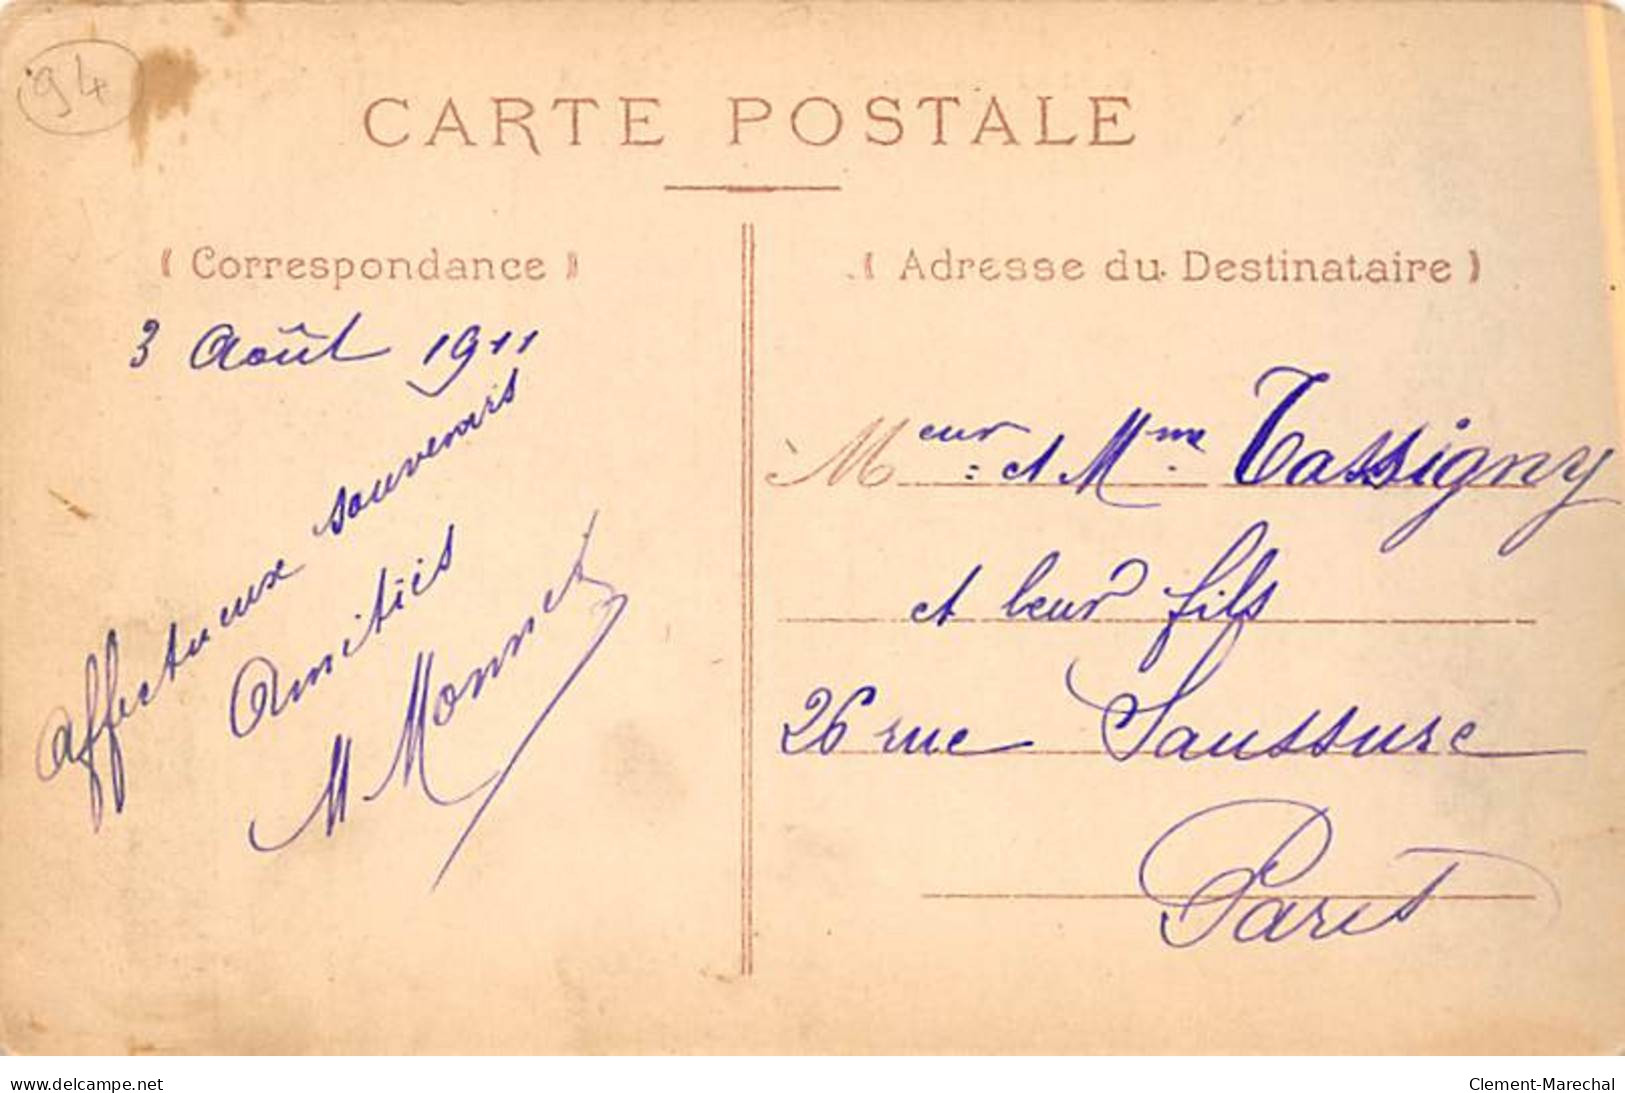 94
CARTE POSTALE
( Correspondance )
3 Août 1911
Affectueux souvenirs
Amitiés
M Monnet
( Adresse du Destinataire )
Meur et Mme Tassigny
et leur fils
26 rue Saussure
Paris
www.delcampe.net
Clement-Marechal